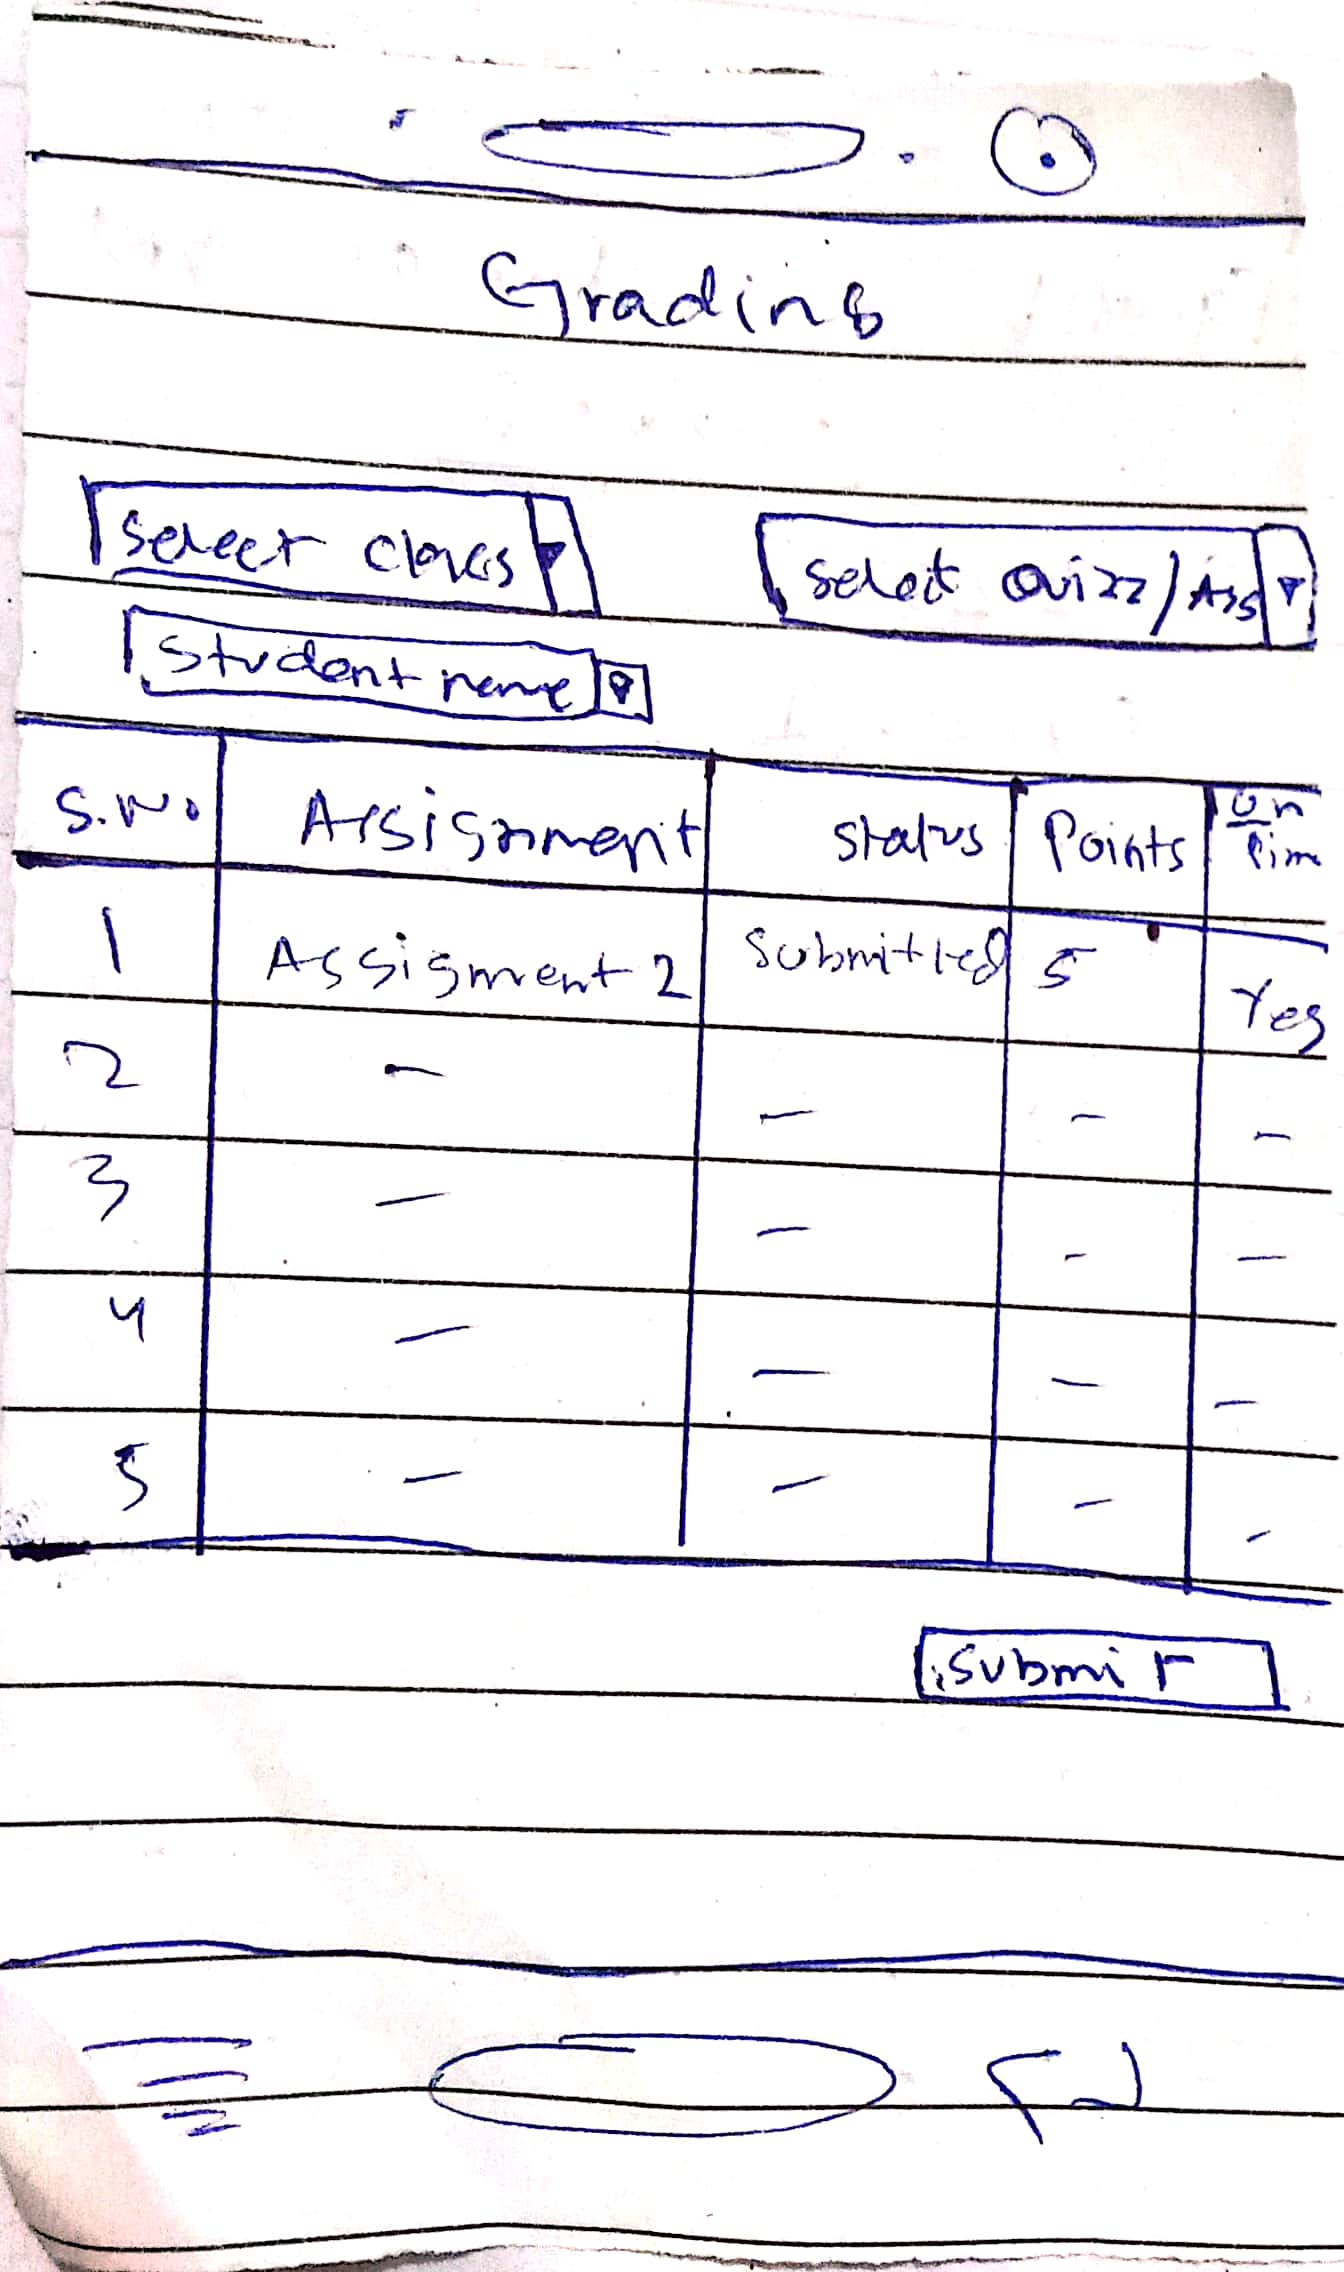 Grading
Select class
Select Quizz/Ass
Student name
S.No Assignment Status Points On Tim
1 Assigment 2 Submitted 5 Yes
2 - - - -
3 - - - -
4 - - - -
5 - - - -
Submit